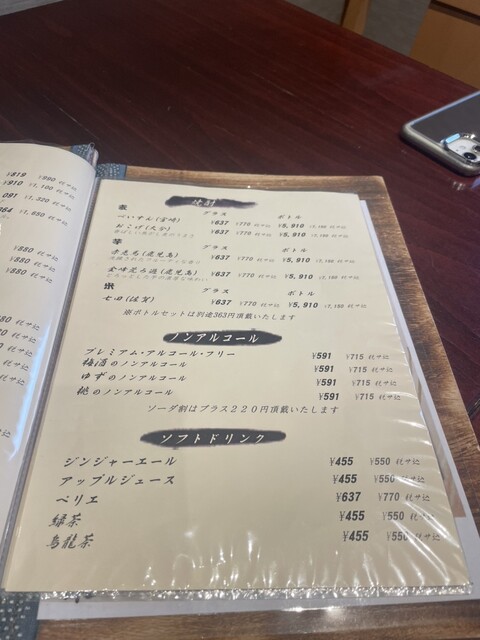 ¥819 ¥890 税サ込
¥910 ¥1,100 税サ込
091 ¥1,320 税サ込
364 ¥1,650 税サ込
¥880 税サ込
¥880 税サ込
¥880 税サ込
焼酎
麦 グラス ボトル
べいすん(宮崎) ¥637 ¥770 税サ込 ¥5,910
おこげ(大分) ¥637 ¥770 税サ込 ¥5,910
芋 グラス ボトル
赤兎馬(鹿児島) ¥637 ¥770 税サ込 ¥5,910
金峰荒み濾(鹿児島) ¥637 ¥770 税サ込 ¥5,910
米 グラス ボトル
七田(佐賀) ¥637 ¥770 税サ込 ¥5,910
※ボトルセットは別途363円頂戴いたします
ノンアルコール
プレミアム・アルコール・フリー ¥591 ¥715 税サ込
梅酒のノンアルコール ¥591 ¥715 税サ込
ゆずのノンアルコール ¥591 ¥715 税サ込
桃のノンアルコール ¥591 ¥715 税サ込
ソーダ割はプラス220円頂戴いたします
ソフトドリンク
ジンジャーエール ¥455 ¥550 税サ込
アップルジュース ¥455 ¥550 税サ込
ペリエ ¥637 ¥770 税サ込
緑茶 ¥455 ¥550 税サ込
烏龍茶 ¥455 ¥550 税サ込